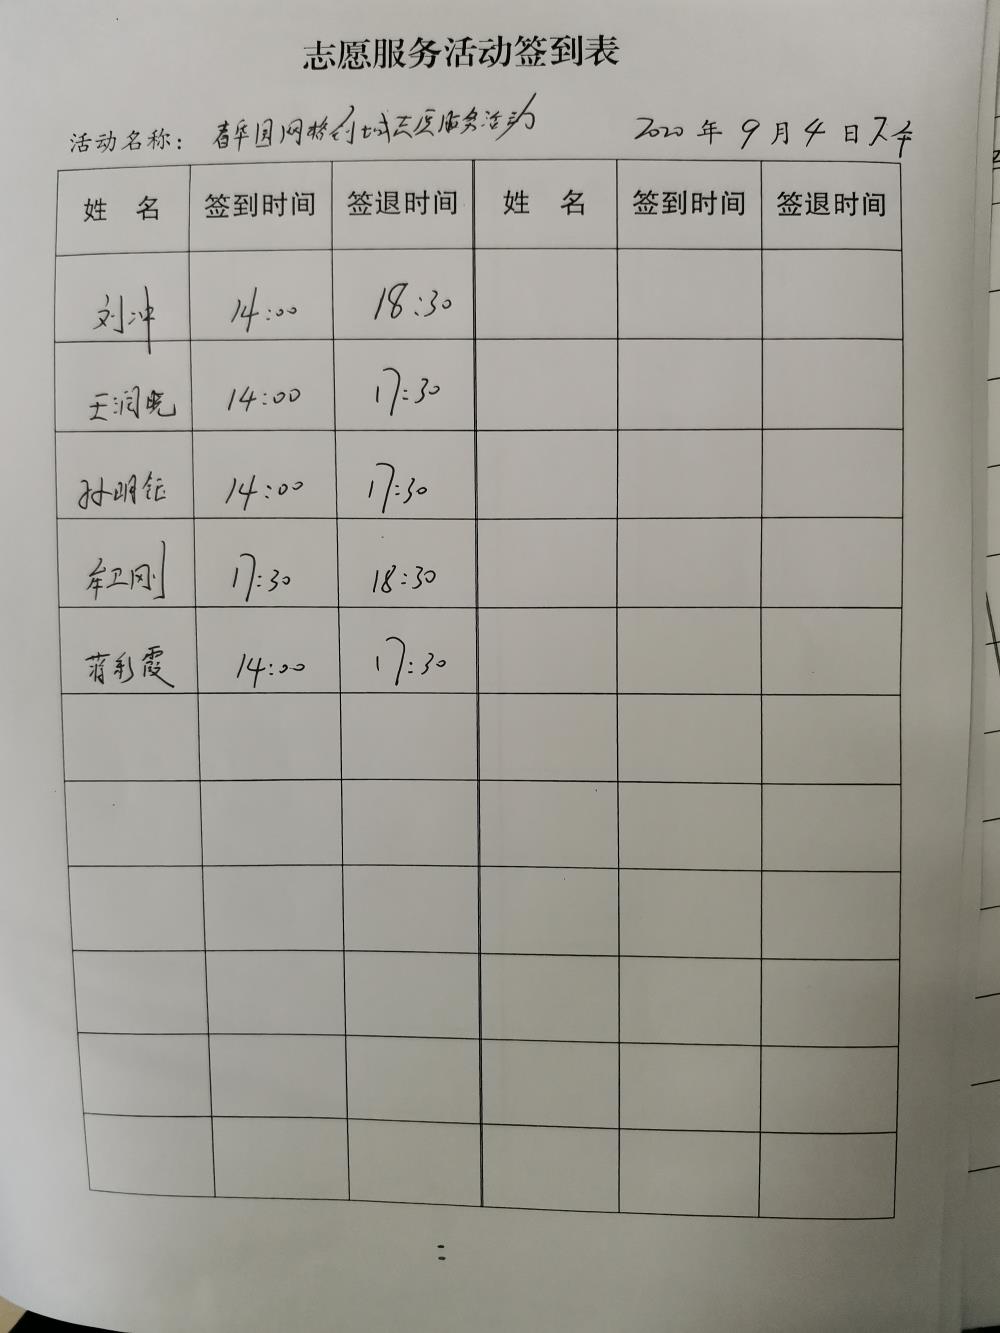 志愿服务活动签到表
活动名称：春华园网格创城志愿服务活动 2020年9月4日下午
姓 名 签到时间 签退时间 姓 名 签到时间 签退时间
刘冲 14:00 18:30
王润晓 14:00 17:30
孙明钰 14:00 17:30
牟卫刚 17:30 18:30
蒋彩霞 14:00 17:30